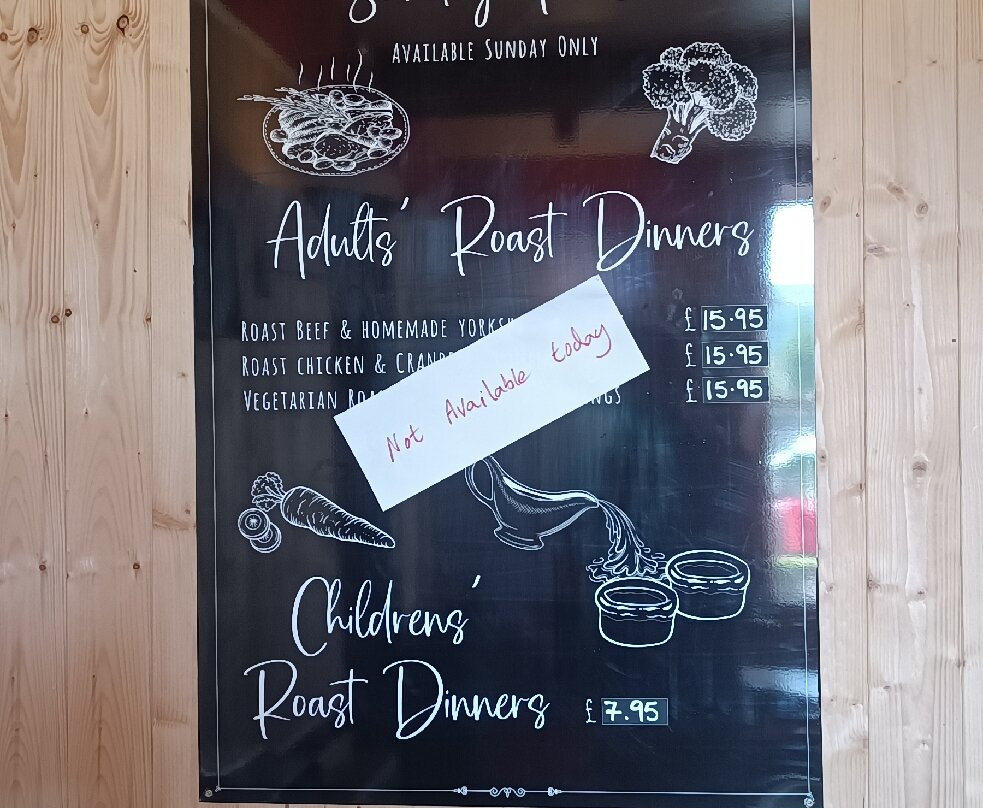 Available Sunday Only
Adults' Roast Dinners
Roast Beef & homemade £ 15.95
Roast chicken & £ 15.95
Vegetarian £ 15.95
Not Available today
Childrens'
Roast Dinners £ 7.95